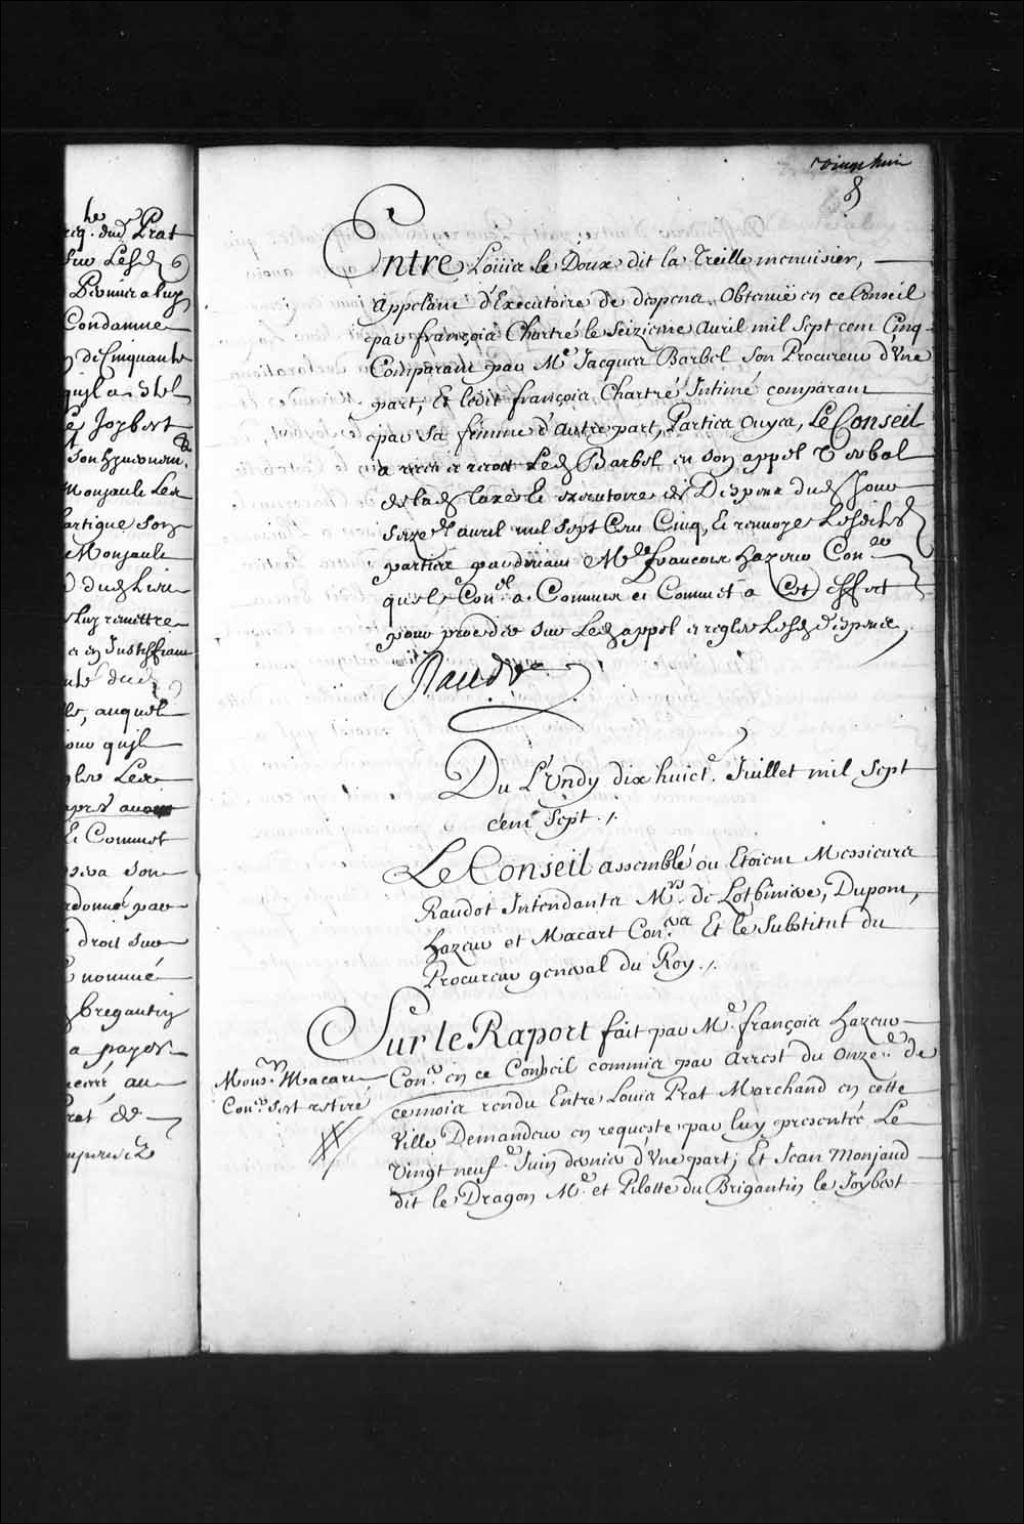 he
req. dud. Prat
sur Lesd.
Premier a luy
Condamne
de Cinquante
quyl a
Joybert
son
Monjaule Les
artique son
Monjaule
dud.
luy remettre
en Justiffiant
dud.
auquel
quyl
Les
apres avoir
Et Commet
sera son
donné par
droit sur
nommé
bregantin
a payer
au
vingt huit
8
Entre Loüis le Doux dit la Treille menuisier,
Appelant d'Executoire de despens Obtenüe en ce Conseil
par françois Chartré le Seizieme Avril mil Sept cent Cinq
Comparant par Me. Jacques Barbel son Procureur d'Une
part; Et ledit françois Chartré Intimé comparant
par sa femme d'autre part, Parties Ouyes, Le Conseil
a receu et reçoit Led. Barbel en son appel Verbal
de lad. taxe Et executoire de Despens dud. Jour
seize. avril mil sept Cent Cinq, Et renvoye Lesdites
parties pardevant Me. françois hazeur Coner.
que le Conel. a Commis et Commet a Cet effect
pour proceder sur Led. appel et regler Lesd. despens,
Raudot
Du L'Undy dix huict. Juillet mil Sept
cent Sept ./.
Le Conseil assemblé ou Etoient Messieurs
Raudot Intendants Mrs. de Lotbiniere, Dupont,
hazeur et Macart Coners. Et le Substitut du
Procureur general du Roy ./.
Sur le Raport fait par Me. françois hazeur
Coner. en ce Conseil commis par Arrest du Onze.e de
Monsr. Macart
Coner. s'est retiré
ce mois rendu Entre Louis Prat Marchand en cette
Ville Demandeur en requeste par luy presentée Le
Vingt neuf.e Juin dernier d'Une part; Et Jean Monjaud
dit le Dragon Me. et Pilotte du Brigantin le Joybert